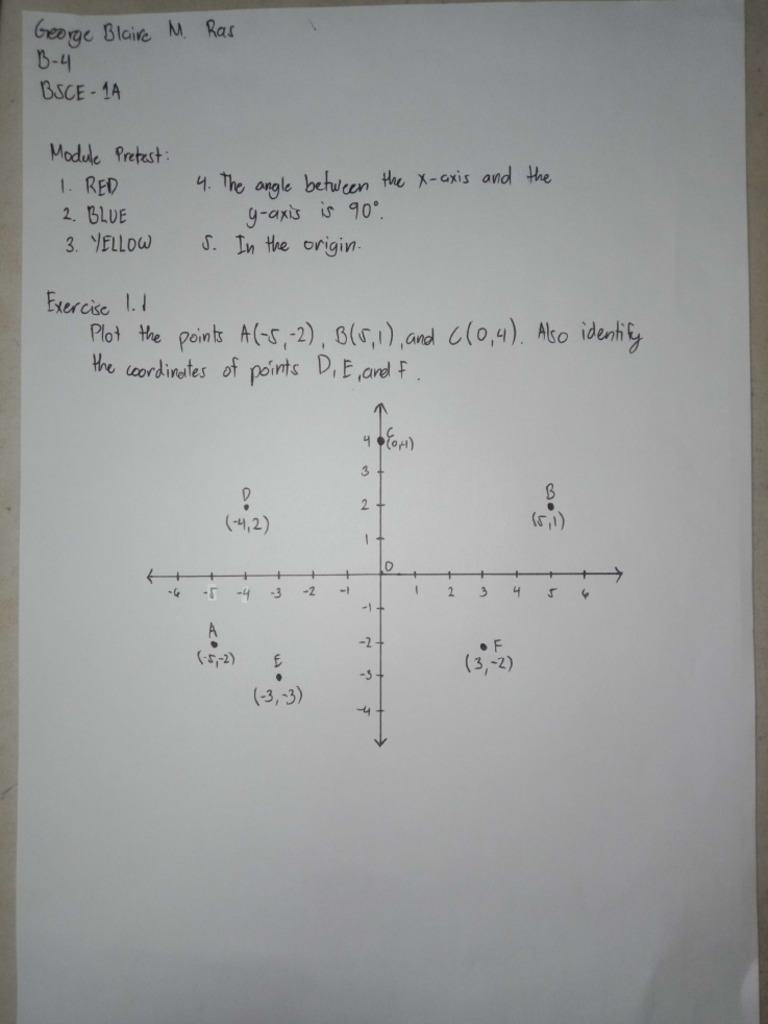 George Blaire M. Ras
B-4
BSCE - 1A
Module Pretest:
1. RED
2. BLUE
3. YELLOW
4. The angle between the x-axis and the
y-axis is 90°.
5. In the origin.
Exercise 1.1
Plot the points A(-5,-2), B(5,1), and C(0,4). Also identify
the coordinates of points D, E, and F.
C
4 (0,4)
3
D
B
2
(-4,2)
(5,1)
1
O
-6 -5 -4 -3 -2 -1 1 2 3 4 5 6
-1
A
-2
F
(-5,-2)
E
(3,-2)
-3
(-3,-3)
-4